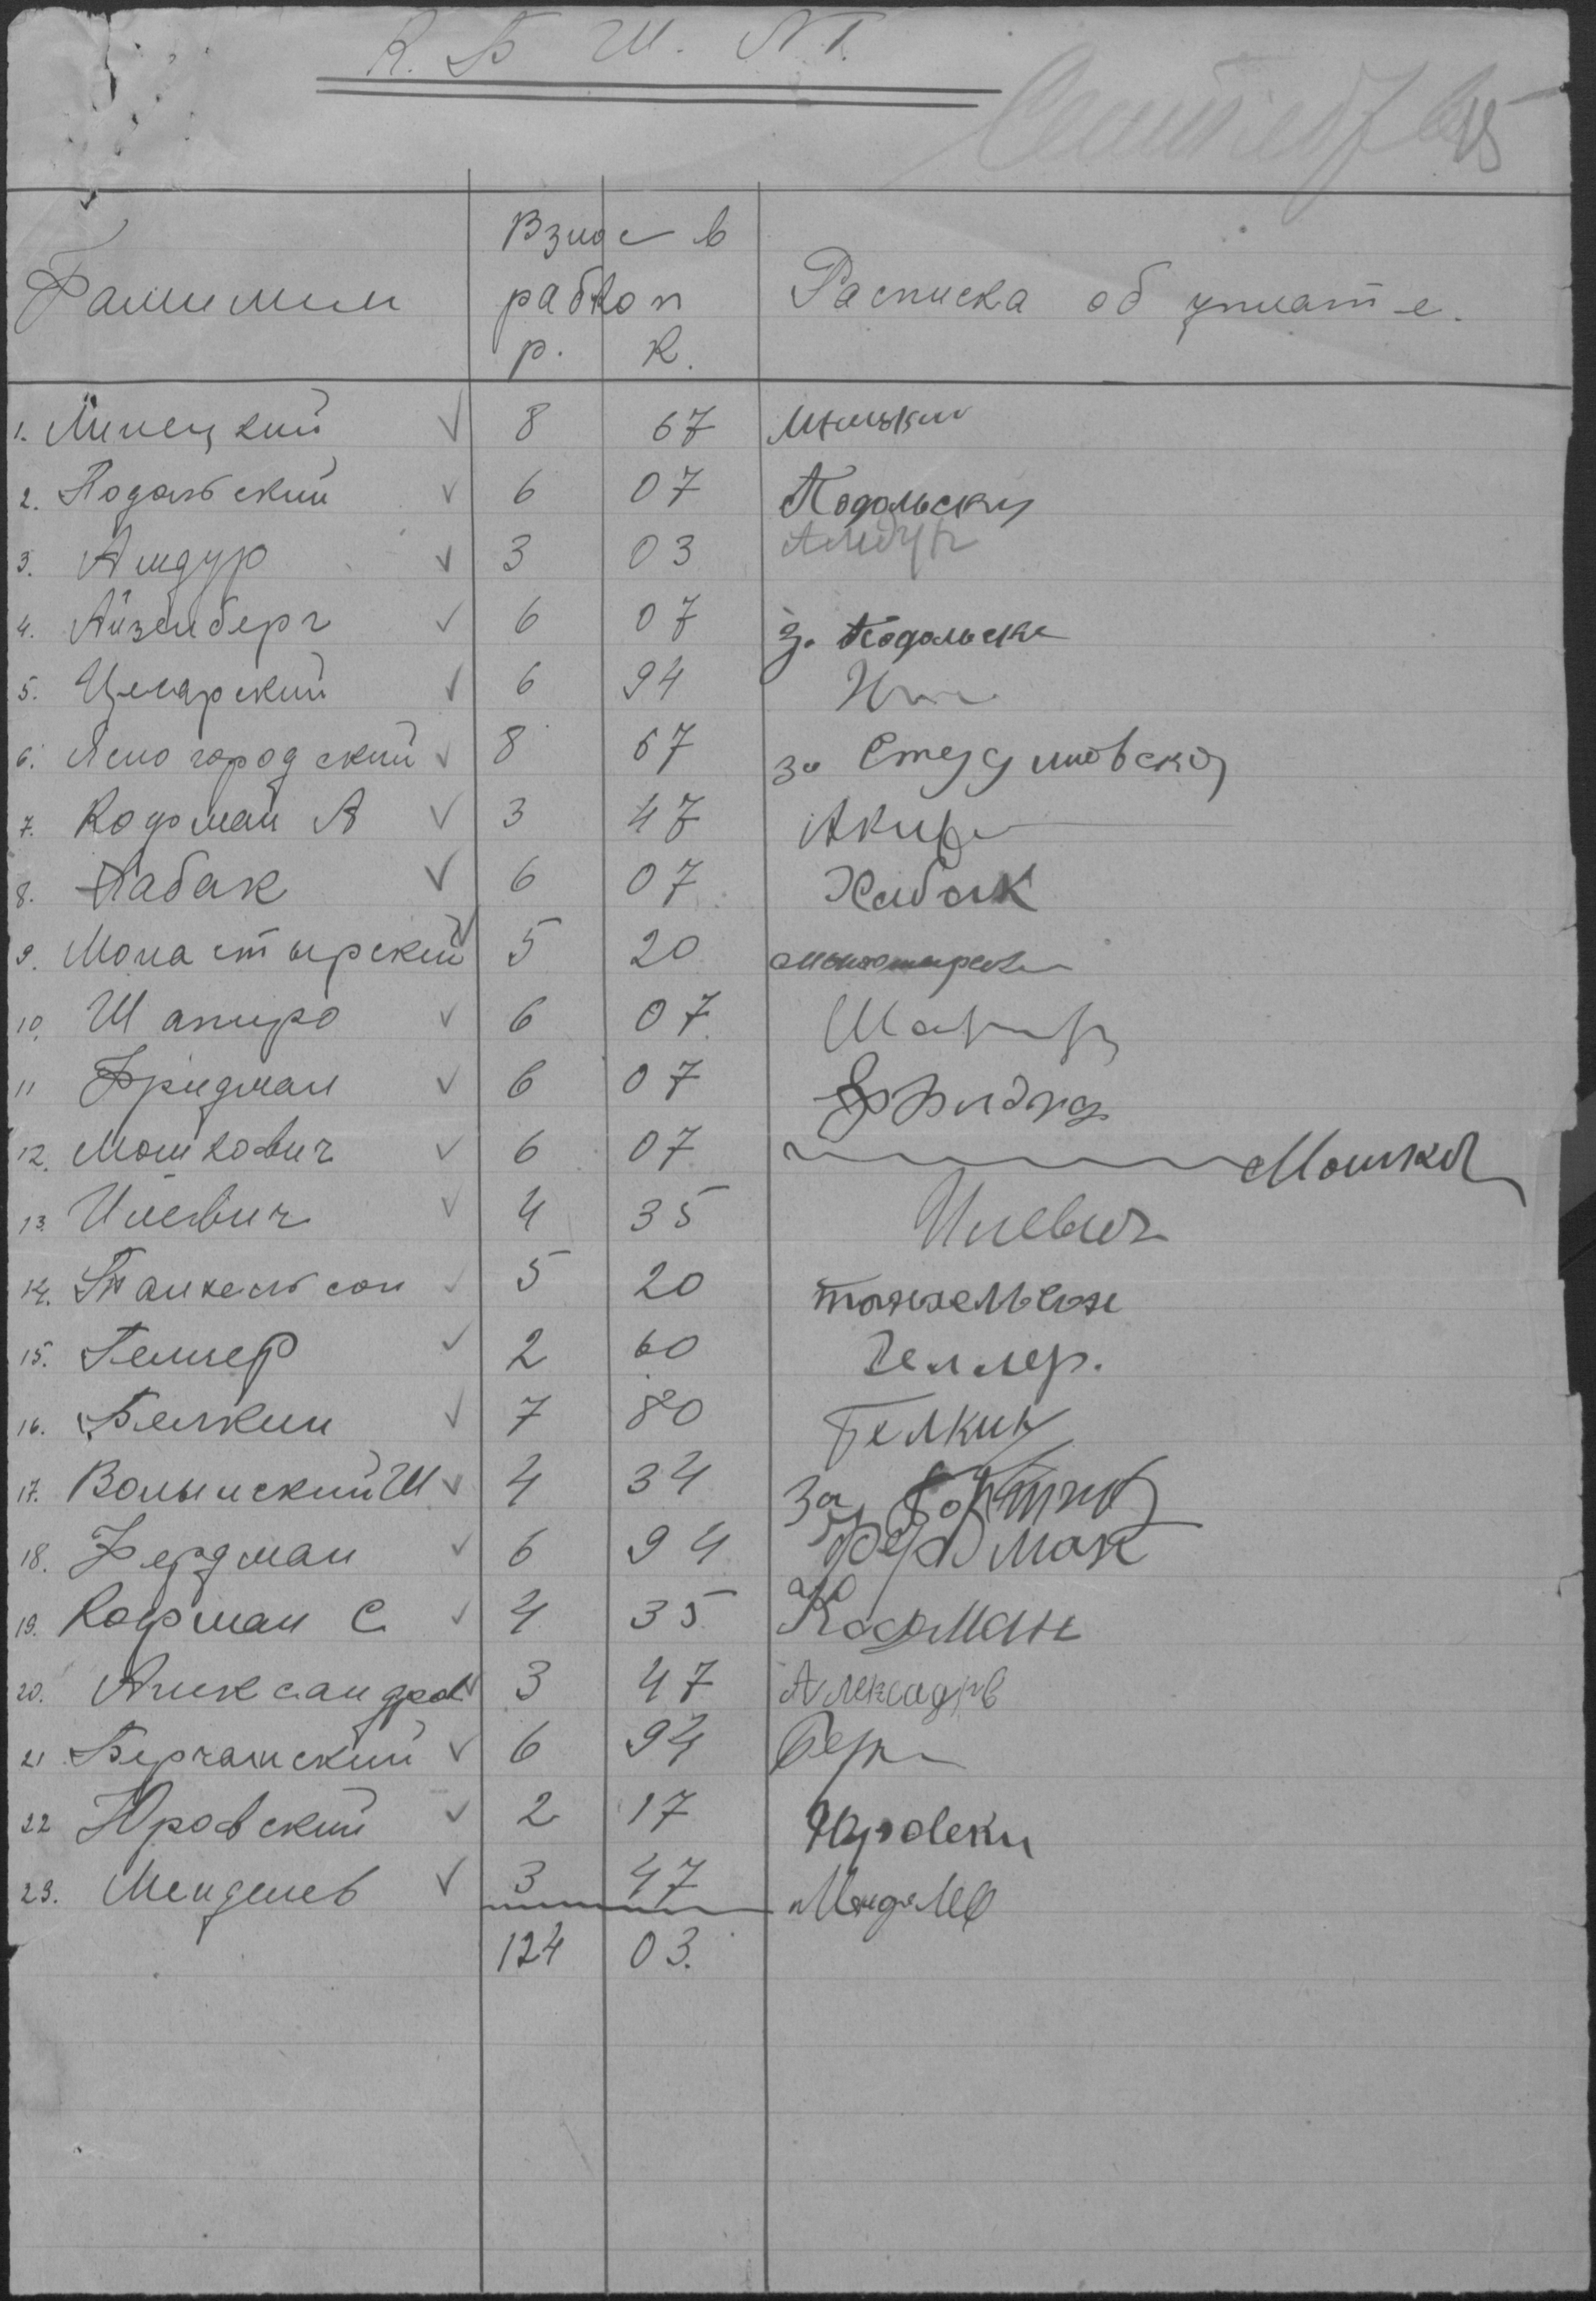 К. Б Ш. №1.
Сентябрь
15
Фамилии
Взнос в
рабкоп
р. К.
Расписка об уплате.
1. Линецкий √ 8 67
2. Подольский √ 6 07 Подольский
3. Амдур √ 3 03 Амдур
4. Айзенберг √ 6 07 з. Подольск
5. Цегарский √ 6 94
6. Ясногородский √ 8 67 за
7. Кофман А √ 3 47
8. Хабак √ 6 07 Хабак
9. Монастырский √ 5 20 Монастырск
10. Шапиро √ 6 07 Шапир
11 Фридман √ 6 07 Фридма
12. Мошкович √ 6 07 Мошков
13. Илевич √ 4 35 Илевич
14. Танхельсон √ 5 20 танхельсон
15. Геллер √ 2 60 Геллер.
16. Белкин √ 7 80 Белкин
17. Волынский Ш √ 4 34 за
18. Фердман √ 6 94 Фердман
19. Кофман С. √ 4 35 Кофман
20. Александров √ 3 47 Александров
21 Берчанский √ 6 94 Бер
22 Юровский √ 2 17 Юровски
23. Менделев √ 3 47 Менделев
124 03.